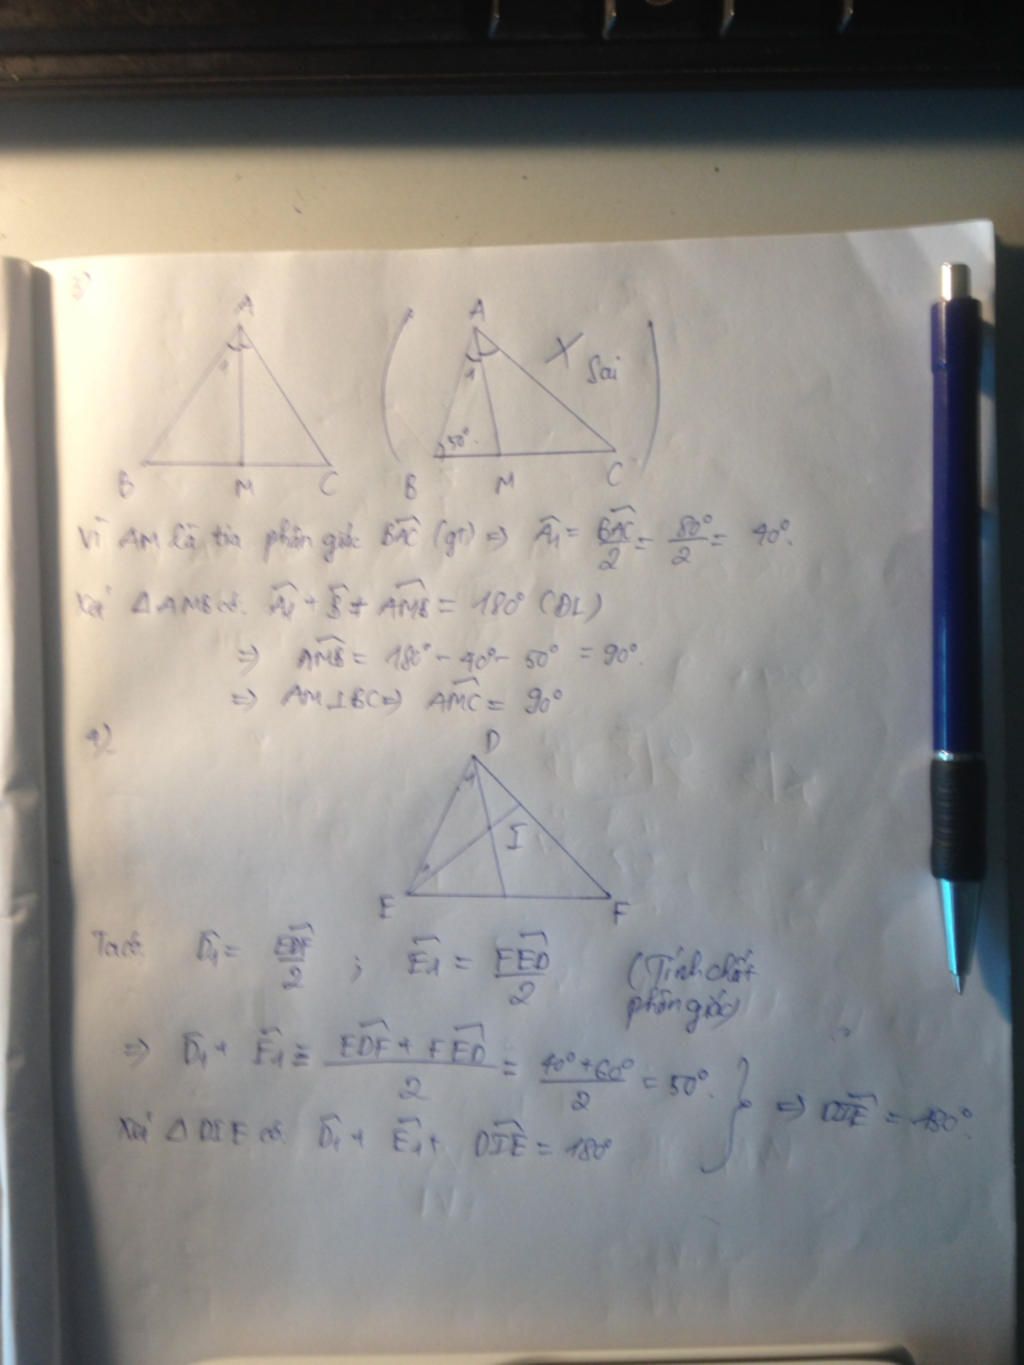 3)
A A
1 1
X Sai
50°
B M C B M C
Vì AM là tia phân giác BAC (gt) ⇒ A₁ = BAC/2 = 80°/2 = 40°.
Xét ΔAMB có. A₁ + B + AMB = 180° (ĐL)
⇒ AMB = 180° - 40° - 50° = 90°.
⇒ AM⊥BC ⇒ AMC = 90°
4)
D
1
I
1
E F
Ta có. D₁ = EDF/2 ; E₁ = FED/2 (Tính chất
phân giác)
⇒ D₁ + E₁ = EDF + FED/2 = 40°+60°/2 = 50°.
Xét ΔDIE có. D₁ + E₁ + DIE = 180° } ⇒ DIE = 130°.